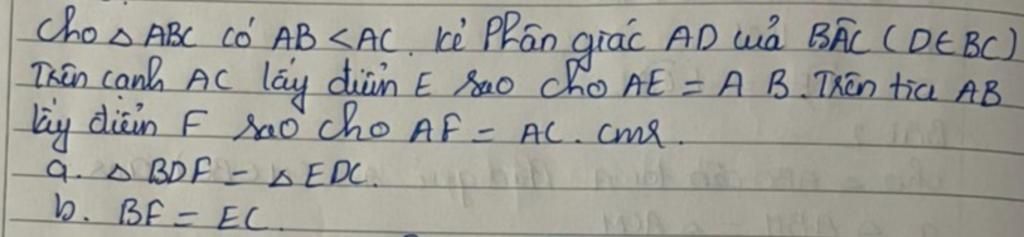 Cho △ ABC có AB < AC. Kẻ Phân giác AD của BÂC (D∈BC)
Trên cạnh AC lấy điểm E sao cho AE = A B. Trên tia AB
lấy điểm F sao cho AF = AC. CMR.
a. △ BDF = △ EDC.
b. BF = EC.